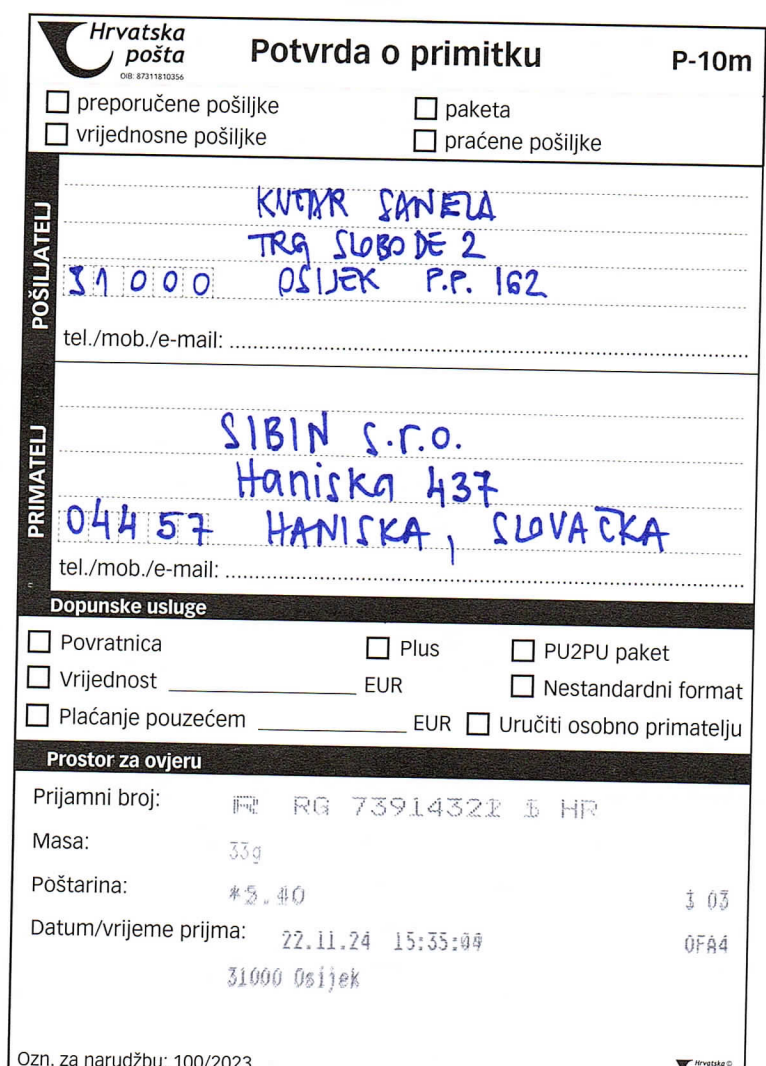 Hrvatska
pošta
OIB: 87311810356
Potvrda o primitku
P-10m
preporučene pošiljke
paketa
vrijednosne pošiljke
praćene pošiljke
POŠILJATELJ
SANELA
TRG SLOBODE 2
31000 OSIJEK P.P. 162
tel./mob./e-mail:
PRIMATELJ
SIBIN s.r.o.
Haniska 437
04457 HANISKA, SLOVAČKA
tel./mob./e-mail:
Dopunske usluge
Povratnica
Plus
PU2PU paket
Vrijednost EUR
Nestandardni format
Plaćanje pouzećem EUR
Uručiti osobno primatelju
Prostor za ovjeru
Prijamni broj: R RG 73914321 HR
Masa: 33g
Poštarina: *5.40
03
Datum/vrijeme prijma: 22.11.24 15:35:
0FA4
31000 Osijek
Ozn. za narudžbu: 100/2023
Hrvatska ©